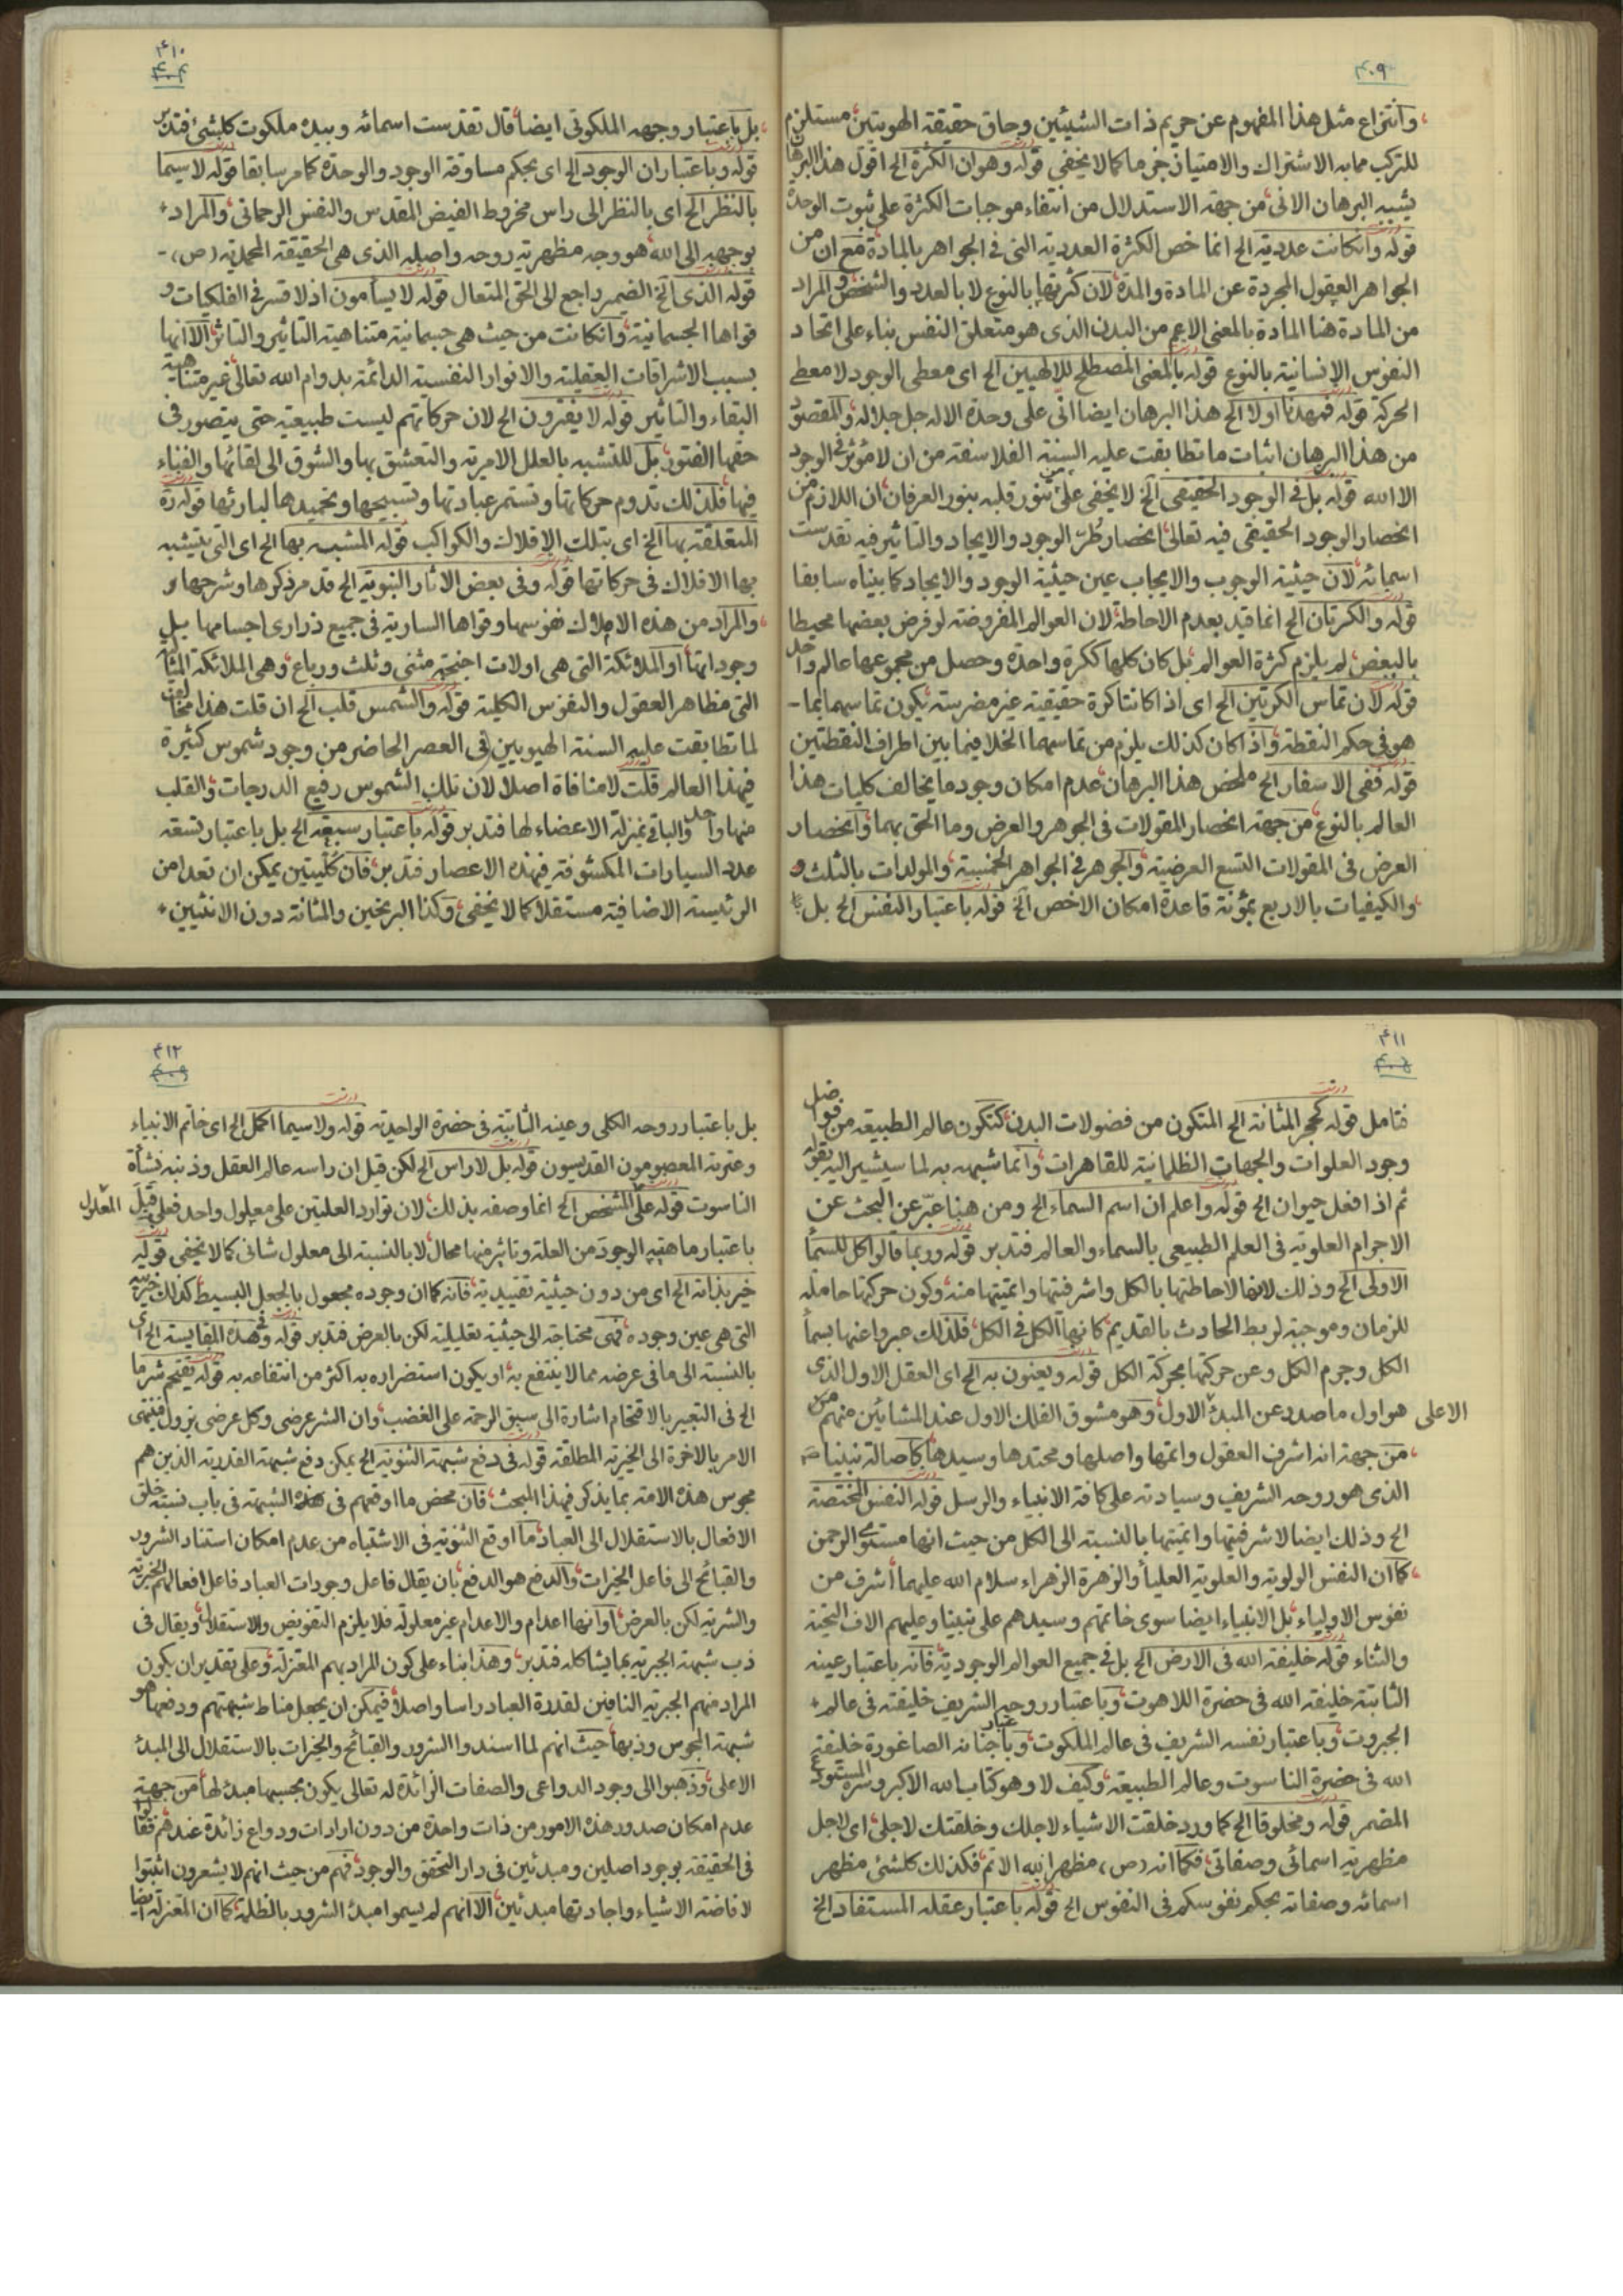 ۴۰۹
وانتزاع مثل هذا المفهوم عن حريم ذات الشيئين وحاق حقيقة الهويتين مستلزم
للتركب مما به الاشتراك والامتياز جزما كما لا يخفى قوله وهو ان الكثرة الخ اقول هذا البرهان
يشبه البرهان الانى من جهة الاستدلال من انتفاء موجبات الكثرة على ثبوت الوحدة
قوله وانكانت عددية الخ انما خص الكثرة العددية التى فى الجواهر بالمادة مع ان من
الجواهر العقول المجردة عن المادة والمدة لان كثرتها بالنوع لا بالعدد والشخص والمراد
من المادة هنا المادة بالمعنى الاعم من البدن الذى هو متعلق النفس بناء على اتحاد
النفوس الانسانية بالنوع قوله بالمعنى المصطلح للالهيين الخ اى معطى الوجود لا معطى
الحركة قوله فمهدنا اولا الخ هذا البرهان ايضا انى على وحدة الاله جل جلاله والمقصود
من هذا البرهان اثبات ما تطابقت عليه السنة الفلاسفة من ان لا مؤثر فى الوجود
الا الله قوله بل فى الوجود الحقيقى الخ لا يخفى على من تنور قلبه بنور العرفان ان اللازم من
انحصار الوجود الحقيقى فيه تعالى انحصار طر الوجود والايجاد والتاثير فيه تقدست
اسمائه لان حيثية الوجوب والايجاب عين حيثية الوجود والايجاد كما بيناه سابقا
قوله والكرتان الخ انما قيد بعدم الاحاطة لان العوالم المفروضة لو فرض بعضها محيطا
بالبعض لم يلزم كثرة العوالم بل كان كلها ككرة واحدة وحصل من مجموعها عالم واحد
قوله لان تماس الكرتين الخ اى اذا كانتا كرة حقيقية غير مضرسة يكون تماسهما بما
هو فى حكم النقطة واذا كان كذلك يلزم من تماسهما الخلا فيما بين اطراف النقطتين
قوله ففى الاسفار الخ ملخص هذا البرهان عدم امكان وجود ما يخالف كليات هذا
العالم بالنوع من جهة انحصار المقولات فى الجوهر والعرض وما الحق بهما وانحصار
العرض فى المقولات التسع العرضية والجوهر فى الجواهر الخمسة والمولدات بالثلث و
والكيفيات بالاربع بمؤنة قاعدة امكان الاخص الخ قوله باعتبار النفس الخ بل
۴۱۰
بل باعتبار وجهه الملكوتى ايضا قال تقدست اسمائه وبيده ملكوت كلشئ فتدبر
قوله وباعتبار ان الوجود الخ اى بحكم مساوقة الوجود والوحدة كما مر سابقا قوله لا سيما
بالنظر الخ اى بالنظر الى راس مخروط الفيض المقدس والنفس الرحمانى والمراد
بوجهه الى الله هو وجه مظهرية روحه واصله الذى هى الحقيقة المحمدية (ص)
قوله الذى الخ الضمير راجع الى الحق المتعال قوله لا يسأمون اذ لا قسر فى الفلكيات و
قواها الجسمانية وانكانت من حيث هى جسمانية متناهية التاثير والتاثر الا انها
بسبب الاشراقات العقلية والانوار النفسية الدائمة بدوام الله تعالى غير متناهية
البقاء والتاثير قوله لا يفترون الخ لان حركاتهم ليست طبيعية حتى يتصور فى
حقها الفتور بل للتشبه بالعلل الامرية والتعشق بها والشوق الى لقائها والفناء
فيها فلذلك تدوم حركاتها وتستمر عبادتها وتسبيحها وتحميدها لبارئها قوله
المتعلقة بها الخ اى بتلك الافلاك والكواكب قوله المشبه بها الخ اى التى يتشبه
بها الافلاك فى حركاتها قوله وفى بعض الاثار النبوية الخ قد مر ذكرها وشرحها و
والمراد من هذه الاملاك نفوسها وقواها السارية فى جميع ذرارى اجسامها بل
وجوداتها او الملائكة التى هى اولات اجنحة مثنى وثلث ورباع وهى الملائكة
التى مظاهر العقول والنفوس الكلية قوله والشمس قلب الخ ان قلت هذا مخالف
لما تطابقت عليه السنة الهيويين فى العصر الحاضر من وجود شموس كثيرة
فيهذا العالم قلت لا منافاة اصلا لان تلك الشموس رفيع الدرجات والقلب
منها واحد والباقى بمنزلة الاعضاء لها فتدبر قوله باعتبار سبعة الخ بل باعتبار تسعة
عدد السيارات المكشوفة فيهذه الاعصار فتدبر فان كليتين يمكن ان تعدا من
الرئيسة الاضافية مستقلا كما لا يخفى وكذا البربخين والمثانة دون الانثيين
۴۱۱
فتامل قوله كحجر المثانة الخ المتكون من فضولات البدن كتكون عالم الطبيعة من فواضل
وجود العلوات والجهات الظلمانية للقاهرات وانما شبهه به لما سيشير اليه بقوله
ثم اذ افعل حيوان الخ قوله واعلم ان اسم السماء الخ ومن هنا عبّر عن البحث عن
الاجرام العلوية فى العلم الطبيعى بالسماء والعالم فتدبر قوله وربما قالوا كل للسماء
الاولى الخ وذلك لاحاطتها بالكل واشرفيتها واتميتها منه وكون حركتها حاملة
للزمان وموجبة لربط الحادث بالقديم كانها الكل فى الكل فلذلك عبروا عنها بسماء
الكل وجرم الكل وعن حركتها بحركة الكل قوله ويعنون به الخ اى العقل الاول الذى
هو اول ما صدر عن المبدء الاول وهو مشوق الفلك الاول عند المشائين منهم الاعلى
من جهة انه اشرف العقول واتمها واصلها ومحتدها وسيدها كاصالة نبينا ص
الذى هو روحه الشريف وسيادته على كافة الانبياء والرسل قوله النفس المختصة
الخ وذلك ايضا لاشرفيتها واتميتها بالنسبة الى الكل من حيث انها مستوى الرحمن
كما ان النفس الولوية والعلوية العليا والزهرة الزهراء سلام الله عليهما أشرف من
نفوس الاولياء بل الانبياء ايضا سوى خاتمهم وسيدهم على نبينا وعليهم الاف التحية
والثناء قوله خليفة الله فى الارض الخ بل فى جميع العوالم الوجودية فانه باعتبار عينه
الثابتة خليفة الله فى حضرة اللاهوت وباعتبار روحه الشريف خليفته فى عالم
الجبروت وباعتبار نفسه الشريف فى عالم الملكوت وباعتبار جثمانه خليفة
الله فى حضرة الناسوت وعالم الطبيعة وكيف لا وهو كتاب الله الاكبر وسره المستودع
المضمر قوله ومخلوقا الخ كما ورد خلقت الاشياء لاجلك وخلقتك لاجلى اى لاجل
مظهرية اسمائى وصفاتى فكما انه (ص) مظهر الله الاتم فكذلك كلشئ مظهر
اسمائه وصفاته بحكم نفوسكم فى النفوس الخ قوله باعتبار عقله المستفاد الخ
۴۱۲
بل باعتبار روحه الكلى وعينه الثابتة فى حضرة الواحدية قوله ولا سيما اكمل الخ اى خاتم الانبياء
وعترته المعصومون القديسون قوله بل لا راس الخ لكن قيل ان راسه عالم العقل وذنبه نشأة
الناسوت قوله على المشخص الخ انما وصفه بذلك لان توارد العلتين على معلول واحد فعلى قبل المعلول
باعتبار ماهيته الوجود من العلة وتاثره منها محال لا بالنسبة الى معلول شانى كما لا يخفى قوله
خير بذاته الخ اى من دون حيثية تقييدية فانه كما ان وجوده مجعول بالجعل البسيط كذلك خيريته
التى هى عين وجوده فهى محتاجة الى حيثية تعليلية لكن بالعرض فتدبر قوله وفى هذه المقايسة الخ اى
بالنسبة الى ما فى عرضه مما لا ينتفع به او يكون استضراره به اكثر من انتفاعه به قوله يقتحم شرما
الخ فى التعبير بالاقتحام اشارة الى سبق الرحمة على الغضب وان الشر عرضى وكل عرضى يزول فينتهى
الامر بالاخرة الى الخيرية المطلقة قوله فى دفع شبهة الثنوية الخ يمكن دفع شبهة القدرية الذين هم
مجوس هذه الامة بما يذكر فيهذا المبحث فان محض ما اوقعهم فى هذه الشبهة فى باب نسبة خلق
الافعال بالاستقلال الى العباد ما اوقع الثنوية فى الاشتباه من عدم امكان استناد الشرور
والقبائح الى فاعل الخيرات والدفع هو الدفع بان يقال فاعل وجودات العباد فاعل افعالهم الخيرية
والشرية لكن بالعرض او انها اعدام والاعدام غير معلولة فلا يلزم التفويض والاستقلال ويقال فى
ذب شبهة الجبرية بما يشاكله فتدبر وهذا بناء على كون المراد بهم المعتزلة وعلى تقدير ان يكون
المراد منهم الجبرية النافين لقدرة العباد راسا واصلا فيمكن ان يجعل مناط شبهتهم ودفعها هو
شبهة المجوس وذبها حيث انهم لما اسندوا الشرور والقبائح والخيرات بالاستقلال الى المبدء
الاعلى وذهبوا الى وجود الدواعى والصفات الزائدة له تعالى يكون بحسبها مبدء لها من جهة
عدم امكان صدور هذه الامور من ذات واحدة من دون ارادات ودواع زائدة عندهم فقالوا
فى الحقيقة بوجود اصلين ومبدئين فى دار التحقق والوجود فهم من حيث انهم لا يشعرون اثبتوا
لافاضة الاشياء واجادتها مبدئين الا انهم لم يسموا مبدء الشرور بالظلمة كما ان المعتزلة ايضا